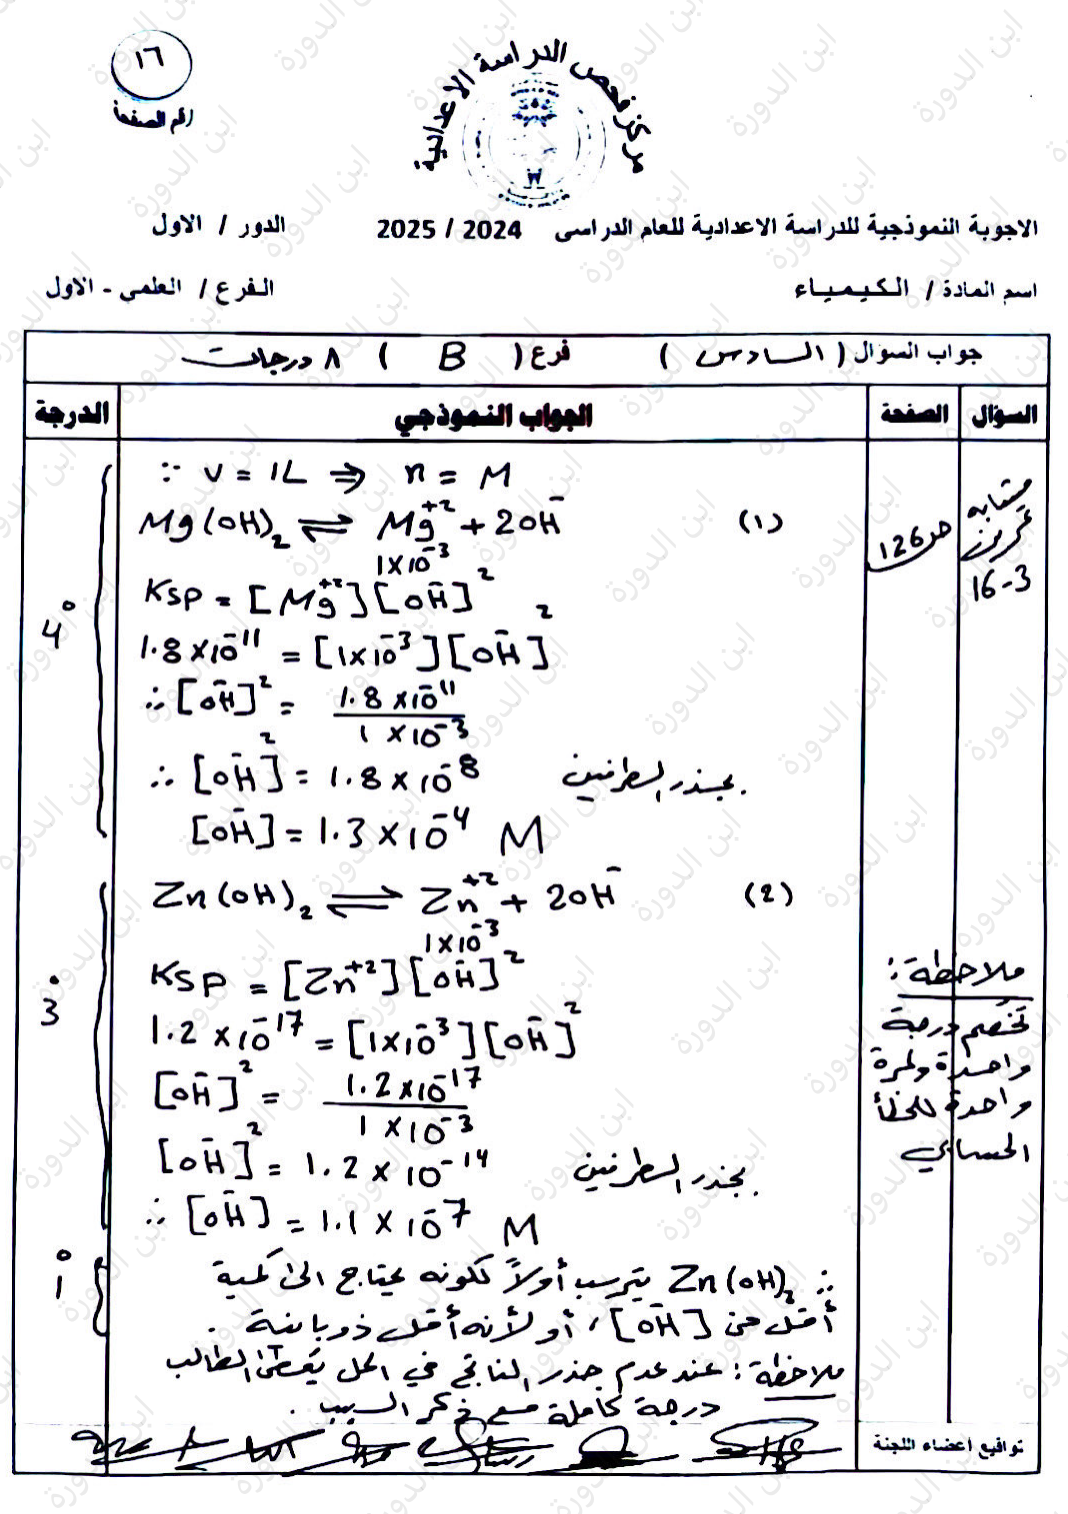 ١٦
رقم الصفحة
مركز فحص الدراسة الاعدادية
الاجوبة النموذجية للدراسة الاعدادية للعام الدراسي 2024 / 2025 الدور / الاول
اسم المادة / الكيمياء الفرع / العلمي - الاول
جواب السؤال ( السادس ) فرع ( B ) ٨ درجات
السؤال الصفحة الجواب النموذجي الدرجة
مشابه
تمرين
16-3
ص126
∵ V = 1L ⇒ n = M
(١) Mg(OH)₂ ⇌ Mg⁺² + 2OH⁻
1×10⁻³
Ksp = [Mg⁺²][OH⁻]²
4°
1.8×10⁻¹¹ = [1×10⁻³][OH⁻]²
∴ [OH⁻]² = 1.8×10⁻¹¹ / 1×10⁻³
∴ [OH⁻]² = 1.8×10⁻⁸ بجذر الطرفين
[OH⁻] = 1.3×10⁻⁴ M
(2) Zn(OH)₂ ⇌ Zn⁺² + 2OH⁻
1×10⁻³
Ksp = [Zn⁺²][OH⁻]²
3°
1.2×10⁻¹⁷ = [1×10⁻³][OH⁻]²
[OH⁻]² = 1.2×10⁻¹⁷ / 1×10⁻³
[OH⁻]² = 1.2×10⁻¹⁴ بجذر الطرفين
∴ [OH⁻] = 1.1×10⁻⁷ M
ملاحظة :
تخصم درجة
واحدة ولمرة
واحدة للخطأ
الحسابي
1°
∴ Zn(OH)₂ يترسب أولاً لكونه يحتاج الى كمية
أقل من [OH⁻] ، أو لأنه أقل ذوبانية .
ملاحظة : عند عدم جذر الناتج في الحل يُعطى الطالب
درجة كاملة مع ذكر السبب .
تواقيع اعضاء اللجنة
ابن الدورة